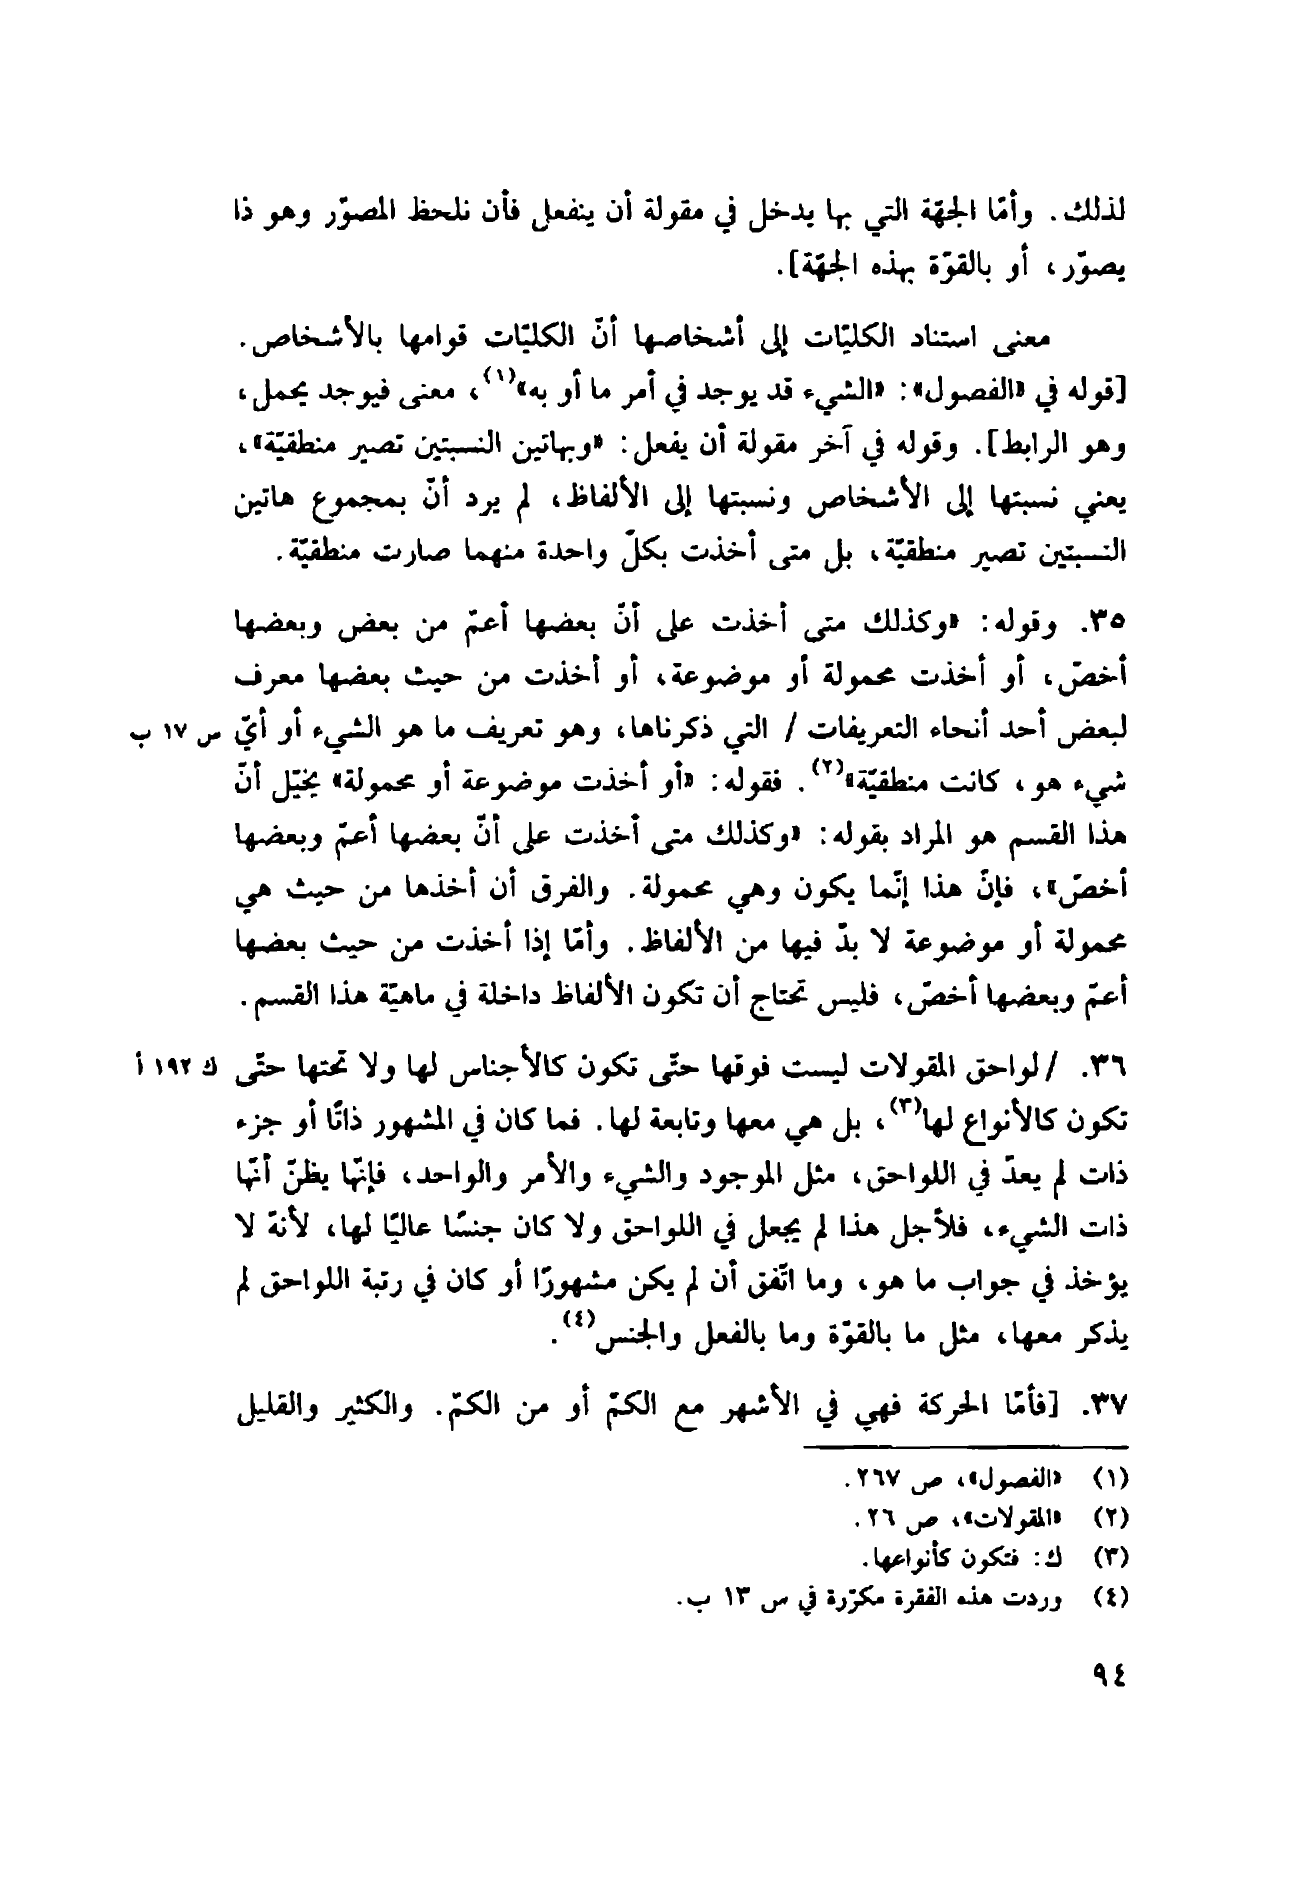 لذلك. وأمّا الجهّة التي بها يدخل في مقولة أن ينفعل فأن نلحظ المصوّر وهو ذا
يصوّر، أو بالقوّة بهذه الجهّة].
معنى استناد الكليّات إلى أشخاصها أنّ الكليّات قوامها بالأشخاص.
[قوله في «الفصول»: «الشيء قد يوجد في أمر ما أو به»(١)، معنى فيوجد يحمل،
وهو الرابط]. وقوله في آخر مقولة أن يفعل: «وبهاتين النسبتين تصير منطقيّة»،
يعني نسبتها إلى الأشخاص ونسبتها إلى الألفاظ، لم يرد أنّ بمجموع هاتين
النسبتين تصير منطقيّة، بل متى أخذت بكلّ واحدة منهما صارت منطقيّة.
٣٥. وقوله: «وكذلك متى أخذت على أنّ بعضها أعمّ من بعض وبعضها
أخصّ، أو أخذت محمولة أو موضوعة، أو أخذت من حيث بعضها معرف
لبعض أحد أنحاء التعريفات / التي ذكرناها، وهو تعريف ما هو الشيء أو أيّ س ١٧ ب
شيء هو، كانت منطقيّة»(٢). فقوله: «أو أخذت موضوعة أو محمولة» يخيّل أنّ
هذا القسم هو المراد بقوله: «وكذلك متى أخذت على أنّ بعضها أعمّ وبعضها
أخصّ»، فإنّ هذا إنّما يكون وهي محمولة. والفرق أن أخذها من حيث هي
محمولة أو موضوعة لا بدّ فيها من الألفاظ. وأمّا إذا أخذت من حيث بعضها
أعمّ وبعضها أخصّ، فليس تحتاج أن تكون الألفاظ داخلة في ماهيّة هذا القسم.
٣٦. /لواحق المقولات ليست فوقها حتّى تكون كالأجناس لها ولا تحتها حتّى ك ١٩٢ أ
تكون كالأنواع لها(٣)، بل هي معها وتابعة لها. فما كان في المشهور ذاتًا أو جزء
ذات لم يعدّ في اللواحق، مثل الموجود والشيء والأمر والواحد، فإنّها يظنّ أنّها
ذات الشيء، فلأجل هذا لم يجعل في اللواحق ولا كان جنسًا عاليًا لها، لأنهّ لا
يؤخذ في جواب ما هو، وما اتّفق أن لم يكن مشهورًا أو كان في رتبة اللواحق لم
يذكر معها، مثل ما بالقوّة وما بالفعل والجنس(٤).
٣٧. [فأمّا الحركة فهي في الأشهر مع الكمّ أو من الكمّ. والكثير والقليل
(١) «الفصول»، ص ٢٦٧.
(٢) «المقولات»، ص ٢٦.
(٣) ك: فتكون كأنواعها.
(٤) وردت هذه الفقرة مكرّرة في س ١٣ ب.
٩٤